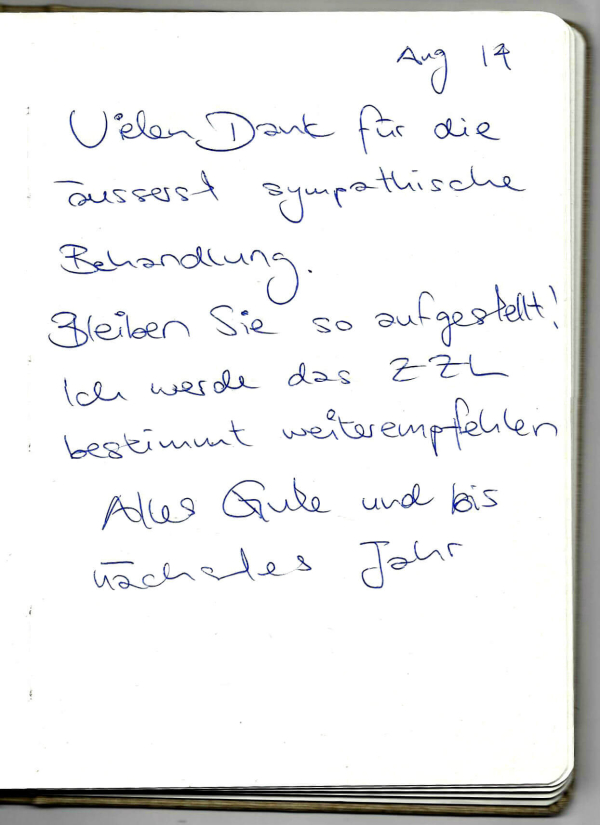 Aug 14
Vielen Dank für die
äusserst sympathische
Behandlung.
Bleiben Sie so aufgestellt!
Ich werde das ZZL
bestimmt weiterempfehlen
Alles Gute und bis
nächstes Jahr